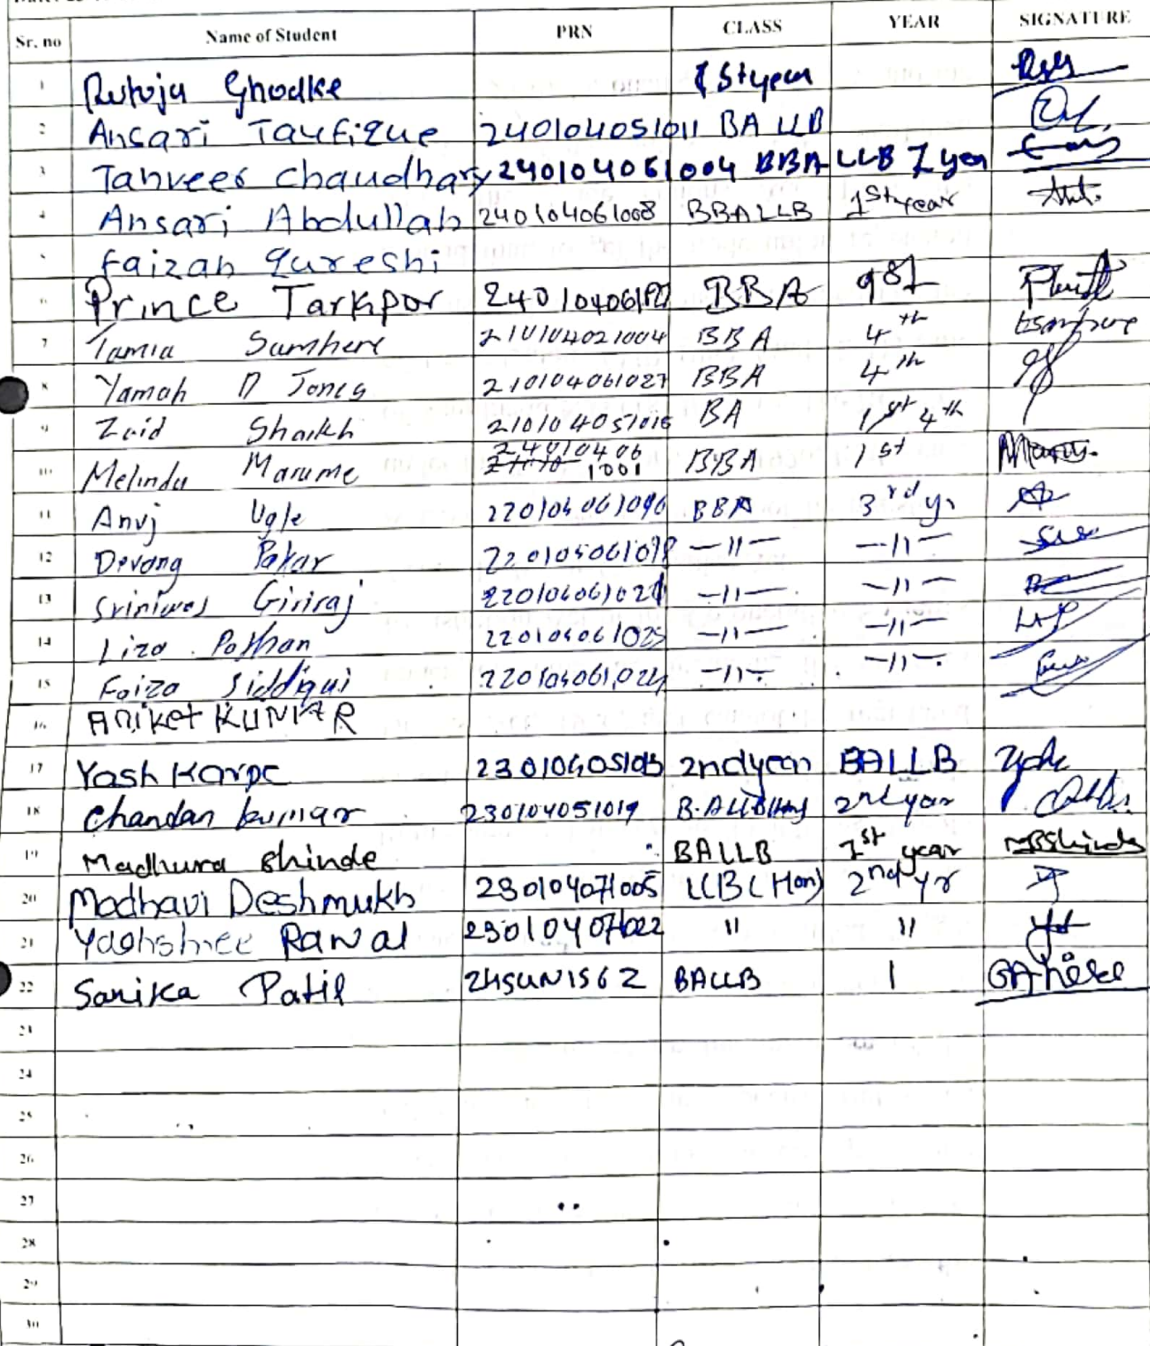 Sr. no Name of Student PRN CLASS YEAR SIGNATURE
1 Rutuja Ghodke 1st year
2 Ansari Taufique 240104051011 BA LLB
3 Tanveer Chaudhary 240104061004 BBA LLB I year
4 Ansari Abdullah 240104061008 BBALLB 1st year
5 Faizan Qureshi
6 Prince Tarkpor BBA
7 Tamia Sumhere 210104021004 BBA 4th
8 Yamah D Jones 210104061027 BBA 4th
9 Zaid Shaikh 210104051016 BA 1st 4th
10 Melinda Marume 24010406 1001 BBA 1st
11 Anuj Ugle 220104061096 BBA 3rd yr
12 Devang Pakar —11— —11—
13 Sriniwas Giriraj —11— —11—
14 Liza Pathan 220104061025 —11— —11—
15 Faiza Siddiqui 220104061024 —11— —11—
16 Aniket KUMAR
17 Yash Karpe 2nd year BALLB
18 Chandan kumar 230104051019 2nd year
19 Madhura Shinde BALLB 1st year MBShinde
20 Madhavi Deshmukh 230104071005 LLB (Hon) 2nd yr
21 Yashshree Rawal 230104071022 11 11
22 Sanika Patil 24SUN1562 BALLB 1
23
24
25
26
27
28
29
30